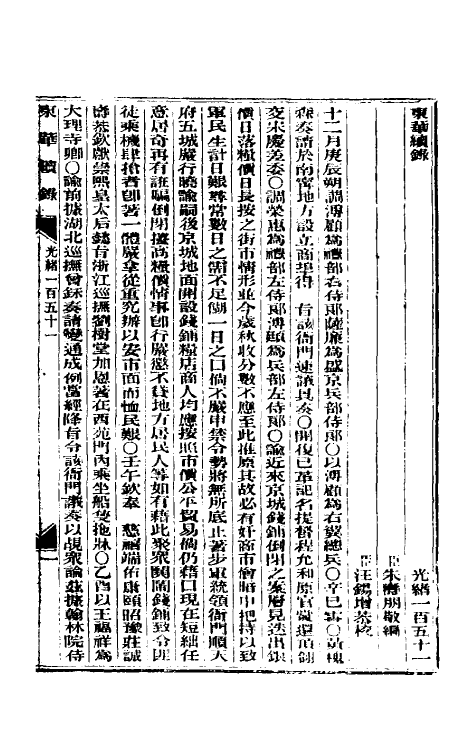 東華續錄
光緒一百五十一
臣朱壽朋敬編
臣汪錫增恭校
十二月庚辰朔調溥顧爲禮部右侍郎薩廉爲盛京兵部侍郎〇以溥顧爲右翼總兵〇辛巳諭〇黃槐
森奏請於南甯地方設立商埠得 旨該衙門速議具奏〇開復已革記名提督程允和原官
交宋慶差委〇調榮惠爲禮部左侍郎溥顧爲兵部左侍郎〇諭近來京城錢鋪倒閉之案層見迭出銀
價日落糧價日長按之街市情形並今歲秋收分數不應至此推原其故必有奸商市儈暗中把持以致
軍民生計日艱尋常數日之需不足供一日之口倘不嚴申禁令勢將無所底止著步軍統領衙門順天
府五城嚴行曉諭嗣後京城地面開設錢鋪糧店商人均應按照市價公平貿易倘仍藉口現在短絀任
意居奇再有誆騙倒閉擡高糧價情事卽行嚴懲不貸地方居民人等如有藉此聚衆鬨鬧錢鋪致令匪
徒乘機肆搶者卽著一體嚴拿從重究辦以安市面而恤民艱〇壬午欽奉 慈禧端佑康頤昭豫莊誠
壽恭欽獻崇熙皇太后懿旨浙江巡撫劉樹堂加恩著在西苑門內乘坐船隻拖牀〇乙酉以王福祥爲
大理寺卿〇諭前據湖北巡撫曾鉌奏請變通成例當經降旨令該衙門議奏以覘衆論茲據翰林院侍
東華續錄
光緒一百五十一
一